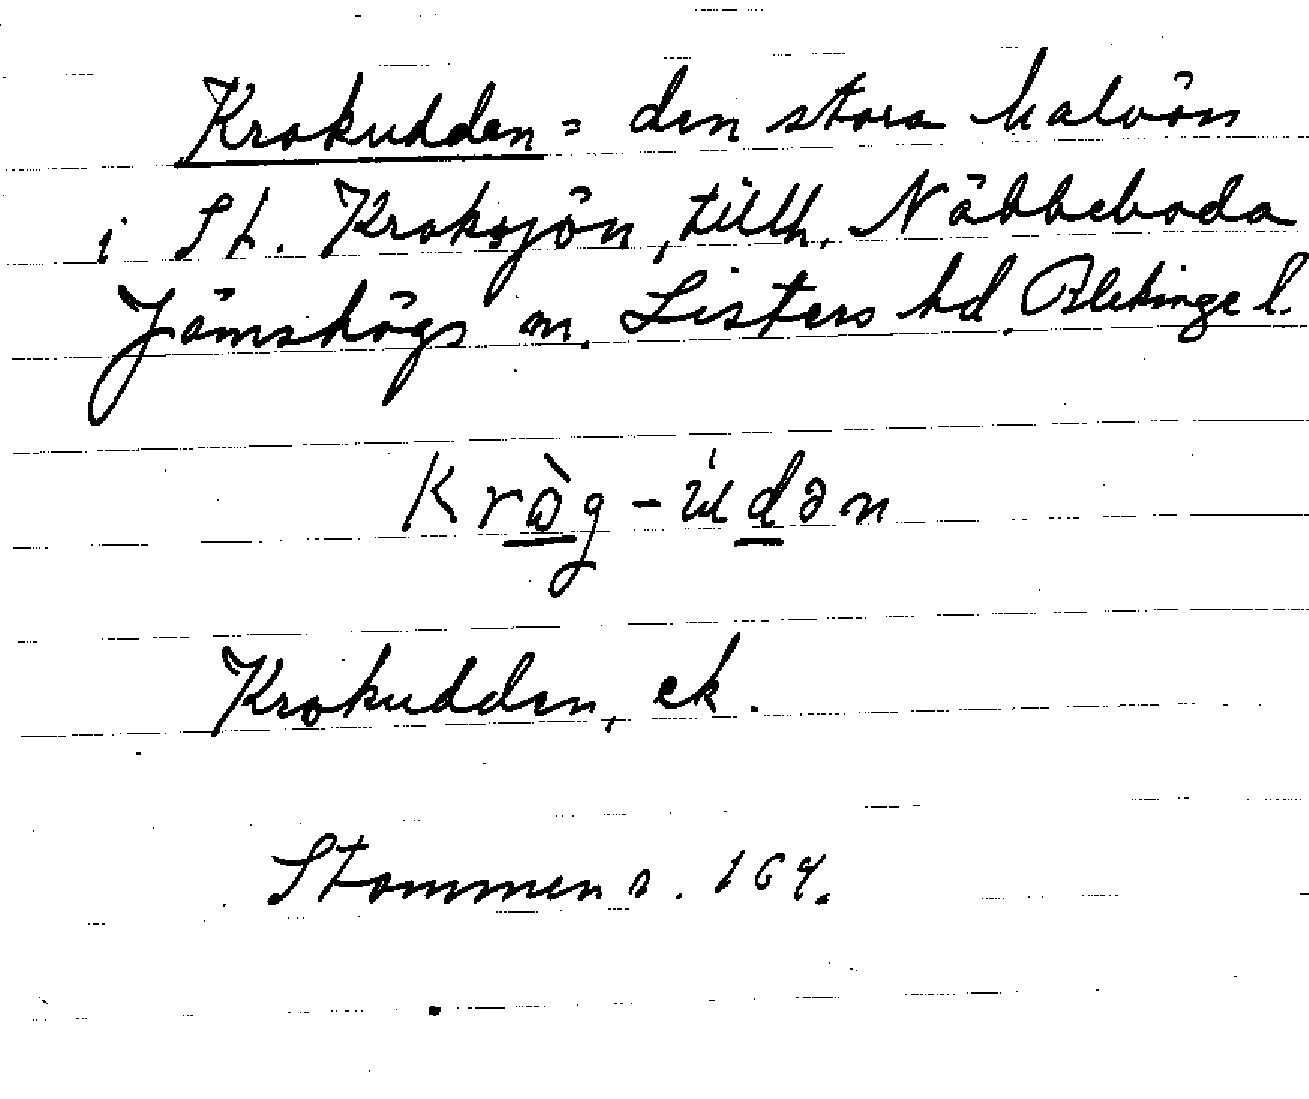 Krokudden = den stora halvön
i St. Kroksjön, tillh. Näbbeboda
Jämshögs sn. Listers hd. Blekinge l.
Kròg - údən
Krokudden, ek.
Stommen s. 164.